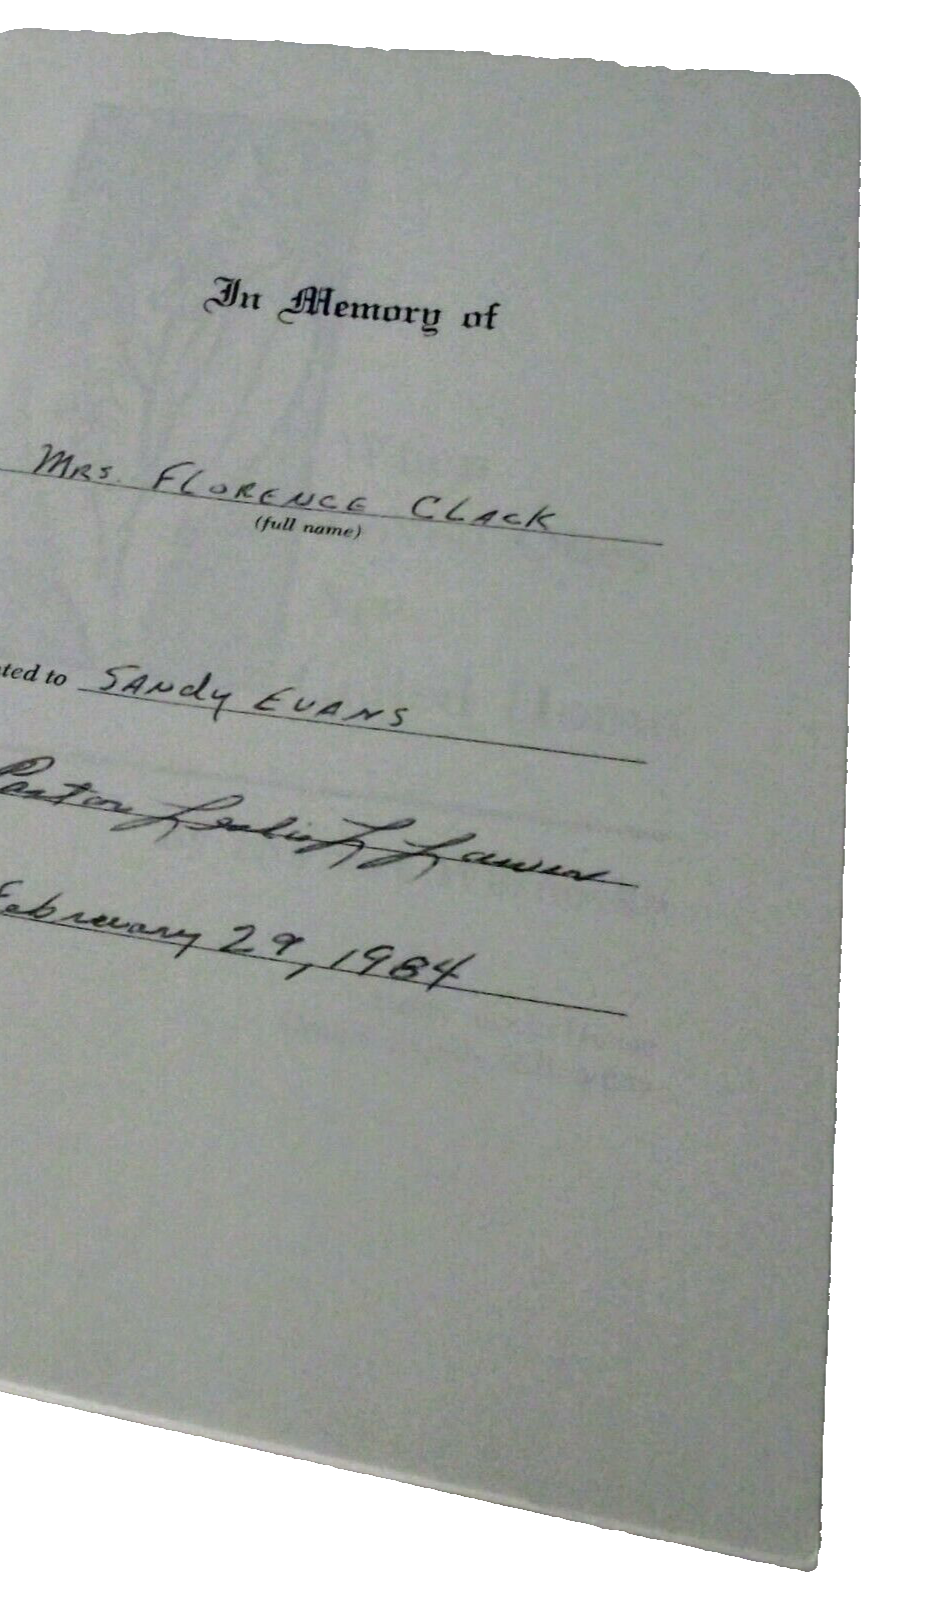 In Memory of
MRS. FLORENCE CLACK
(full name)
ted to SANdy EVANS
Pastor Leslie L. 
February 29, 1984